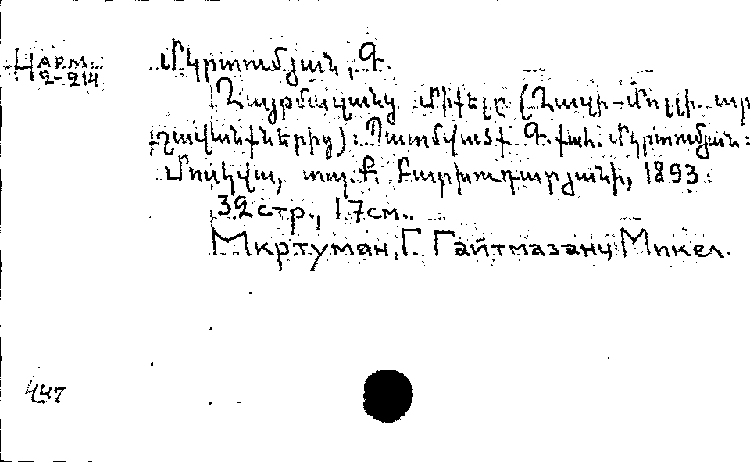 Чарм.
2-214
Մկրտումյան, Գ.
Ղայթմազանց Միքելը (Ղալի-Մոլլի ար
շավանքներից): Պատմված Գ. քահ. Մկրտումյան:
Մոսկվա, տպ. Բարխուդարյանի, 1893.
32 стр., 17 см.
Мкртуман, Г. Гайтмазанц Микел.
447